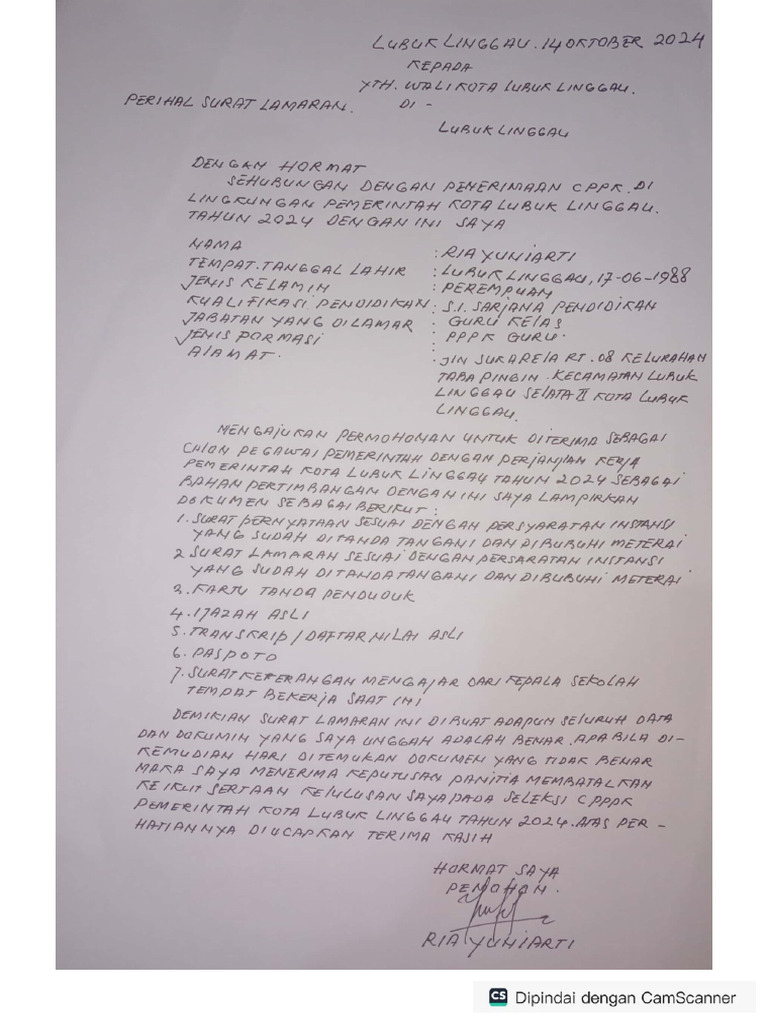 LUBUK LINGGAU. 14 OKTOBER 2024
KEPADA
YTH. WALIKOTA LUBUK LINGGAU.
PERIHAL SURAT LAMARAN. DI -
LUBUK LINGGAU
DENGAN HORMAT
SEHUBUNGAN DENGAN PENERIMAAN CPPK. DI
LINGKUNGAN PEMERINTAH KOTA LUBUK LINGGAU.
TAHUN 2024 DENGAN INI SAYA
NAMA : RIA YUNIARTI
TEMPAT. TANGGAL LAHIR : LUBUK LINGGAU, 17-06-1988
JENIS KELAMIN : PEREMPUAN
KUALIFIKASI PENDIDIKAN : S.I. SARJANA PENDIDIKAN
JABATAN YANG DILAMAR : GURU KELAS
JENIS PORMASI : PPPK GURU.
ALAMAT. : JLN SUKARELA RT. 08 KELURAHAN
TABA PINGIN. KECAMATAN LUBUK
LINGGAU SELATA II KOTA LUBUK
LINGGAU.
MENGAJUKAN PERMOHONAN UNTUK DITERIMA SEBAGAI
CALON PEGAWAI PEMERINTAH DENGAN PERJANJIAN KERJA
PEMERINTAH KOTA LUBUK LINGGAU TAHUN 2024 SEBAGAI
BAHAN PERTIMBANGAN DENGAN INI SAYA LAMPIRKAN
DOKUMEN SEBAGAI BERIKUT :
1. SURAT PERNYATAAN SESUAI DENGAN PERSYARATAN INSTANSI
YANG SUDAH DITANDA TANGANI DAN DIBUBUHI METERAI
2 SURAT LAMARAN SESUAI DENGAN PERSARATAN INSTANSI
YANG SUDAH DITANDATANGANI DAN DIBUBUHI METERAI
3. KARTU TANDA PENDUDUK
4. IJAZAH ASLI
5. TRANSKRIP / DAFTAR NILAI ASLI
6. PASPOTO
7. SURAT KETERANGAN MENGAJAR DARI KEPALA SEKOLAH
TEMPAT BEKERJA SAAT INI
DEMIKIAN SURAT LAMARAN INI DIBUAT ADAPUN SELURUH DATA
DAN DOKUMIN YANG SAYA UNGGAH ADALAH BENAR. APA BILA DI-
KEMUDIAN HARI DITEMUKAN DOKUMEN YANG TIDAK BENAR
MAKA SAYA MENERIMA KEPUTUSAN PANITIA MEMBATALKAN
KEIKUT SERTAAN KELULUSAN SAYA PADA SELEKSI CPPPK
PEMERINTAH KOTA LUBUK LINGGAU TAHUN 2024. ATAS PER-
HATIANNYA DIUCAPKAN TERIMA KASIH
HORMAT SAYA
PEMOHAN.
RIA YUNIARTI
CS Dipindai dengan CamScanner